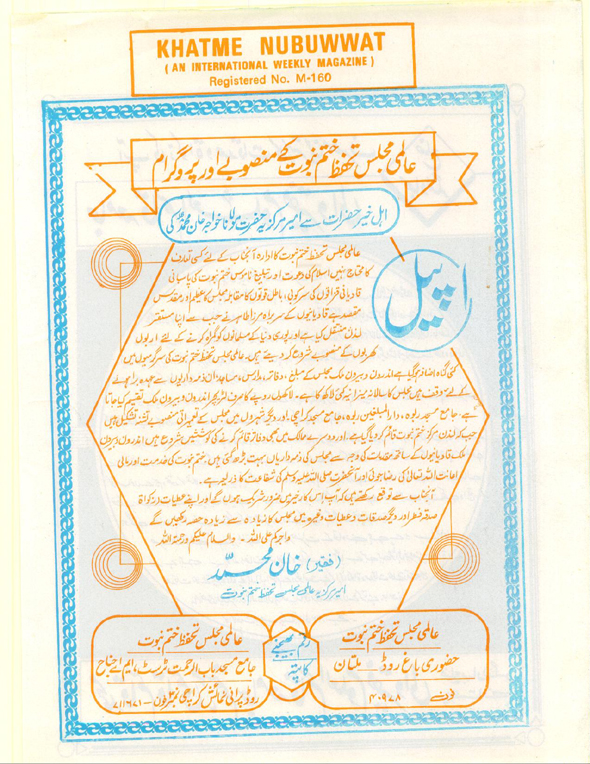 KHATME NUBUWWAT
( AN INTERNATIONAL WEEKLY MAGAZINE )
Registered No. M-160
عالمی مجلس تحفظ ختم نبوت کے منصوبے اور پروگرام
اہل خیر حضرات سے امیر مرکزیہ حضرت مولانا خواجہ خان محمد کی
اپیل
عالمی مجلس تحفظ ختم نبوت کا ادارہ آنجناب کے لئے کسی تعارف
کا محتاج نہیں اسلام کی دعوت اور تبلیغ ناموس ختم نبوت کی پاسبانی
قادیانی قزاقوں کی سرکوبی، باطل قوتوں کا مقابلہ مجلس کا عظیم اور مقدس
مقصد ہے قادیانیوں کے سربراہ مرزا طاہر نے جب سے اپنا مستقر
لندن منتقل کیا ہے اور پوری دنیا کے مسلمانوں کو گمراہ کرنے کے لئے اربوں
کھربوں کے منصوبے شروع کر دیئے ہیں۔ عالمی مجلس تحفظ ختم نبوت کی سرگرمیوں میں
کئی گناہ اضافہ ہو گیا ہے اندرون و بیرون ملک مجلس کے مبلغ، دفاتر، مدارس، مساجد ان ذمہ داریوں سے عہدہ برا ہونے
کے لئے وقف ہیں مجلس کا سالانہ میزانیہ کئی لاکھ کا ہے۔ لاکھوں روپے کا صرف لٹریچر اندرون و بیرون ملک تقسیم کیا جاتا
ہے، جامع مسجد ربوہ، دارالمبلغین ربوہ، جامع مسجد کراچی، اور دیگر شہروں میں مجلس کے تعمیراتی منصوبے تشنہ تکمیل ہیں
جب کہ لندن مرکز ختم نبوت قائم کر دیا گیا ہے۔ اور دوسرے ممالک میں بھی دفاتر قائم کرنے کی کوششیں شروع ہیں اندرون و بیرون
ملک قادیانیوں کے ساتھ مقدمات کی وجہ سے مجلس کی ذمہ داریاں بہت بڑھ گئی ہیں۔ ختم نبوت کی خدمت اور مالی
اعانت اللہ تعالیٰ کی رضا جوئی اور آنحضرت صلی اللہ علیہ وسلم کی شفاعت کا ذریعہ ہے۔
آنجناب سے توقع رکھتے ہیں کہ آپ اس کار خیر میں ضرور شریک ہوں گے اور اپنے عطیات و زکوٰۃ
صدقہ فطر اور دیگر صدقات و عطیات وغیرہ میں مجلس کا زیادہ سے زیادہ حصہ رکھیں گے
واجرکم علی اللہ۔ والسلام علیکم ورحمۃ اللہ
(فقیر) خان محمد
امیر مرکزیہ عالمی مجلس تحفظ ختم نبوت
رقم بھیجنے
کا پتہ
عالمی مجلس تحفظ ختم نبوت
حضوری باغ روڈ ۔ ملتان
فون ۴۰۹۷۸
عالمی مجلس تحفظ ختم نبوت
جامع مسجد باب الرحمت ٹرسٹ، ایم اے جناح
روڈ پرانی نمائش کراچی فون۔ ۷۱۱۶۷۱